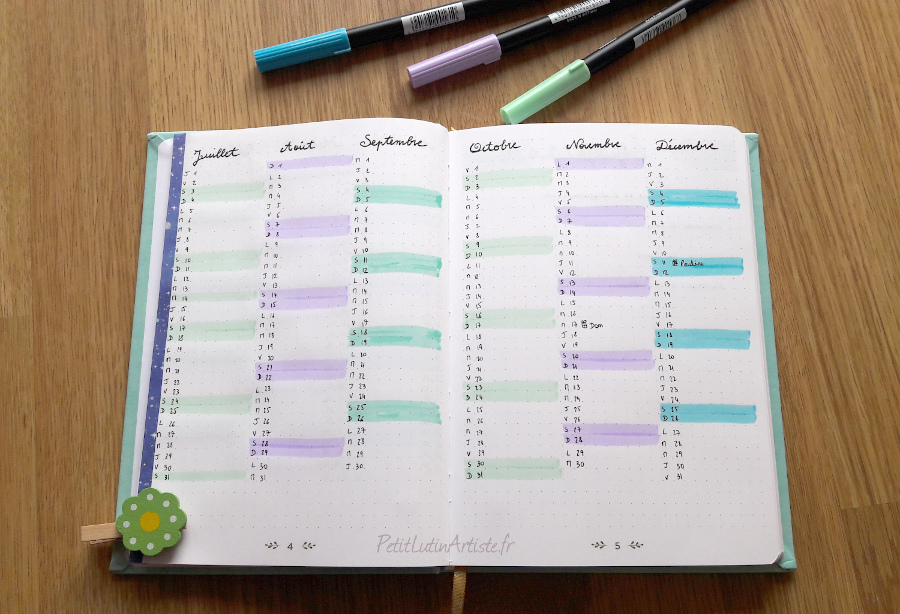 Juillet
J 1
V 2
S 3
D 4
L 5
M 6
M 7
J 8
V 9
S 10
D 11
L 12
M 13
M 14
J 15
V 16
S 17
D 18
L 19
M 20
M 21
J 22
V 23
S 24
D 25
L 26
M 27
M 28
J 29
V 30
S 31
Août
D 1
L 2
M 3
M 4
J 5
V 6
S 7
D 8
L 9
M 10
M 11
J 12
V 13
S 14
D 15
L 16
M 17
M 18
J 19
V 20
S 21
D 22
L 23
M 24
M 25
J 26
V 27
S 28
D 29
L 30
M 31
Septembre
M 1
J 2
V 3
S 4
D 5
L 6
M 7
M 8
J 9
V 10
S 11
D 12
L 13
M 14
M 15
J 16
V 17
S 18
D 19
L 20
M 21
M 22
J 23
V 24
S 25
D 26
L 27
M 28
M 29
J 30
4
Octobre
V 1
S 2
D 3
L 4
M 5
M 6
J 7
V 8
S 9
D 10
L 11
M 12
M 13
J 14
V 15
S 16
D 17
L 18
M 19
M 20
J 21
V 22
S 23
D 24
L 25
M 26
M 27
J 28
V 29
S 30
D 31
Novembre
L 1
M 2
M 3
J 4
V 5
S 6
D 7
L 8
M 9
M 10
J 11
V 12
S 13
D 14
L 15
M 16
M 17 Dom
J 18
V 19
S 20
D 21
L 22
M 23
M 24
J 25
V 26
S 27
D 28
L 29
M 30
Décembre
M 1
J 2
V 3
S 4
D 5
L 6
M 7
M 8
J 9
V 10
S 11 Pauline
D 12
L 13
M 14
M 15
J 16
V 17
S 18
D 19
L 20
M 21
M 22
J 23
V 24
S 25
D 26
L 27
M 28
M 29
J 30
V 31
5
PetitLutinArtiste.fr